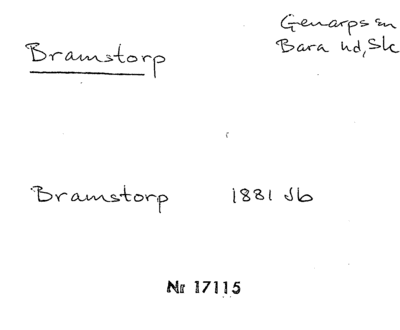 Bramstorp
Genarps sn
Bara hd, Sk
Bramstorp 1881 Jb
Nr 17115